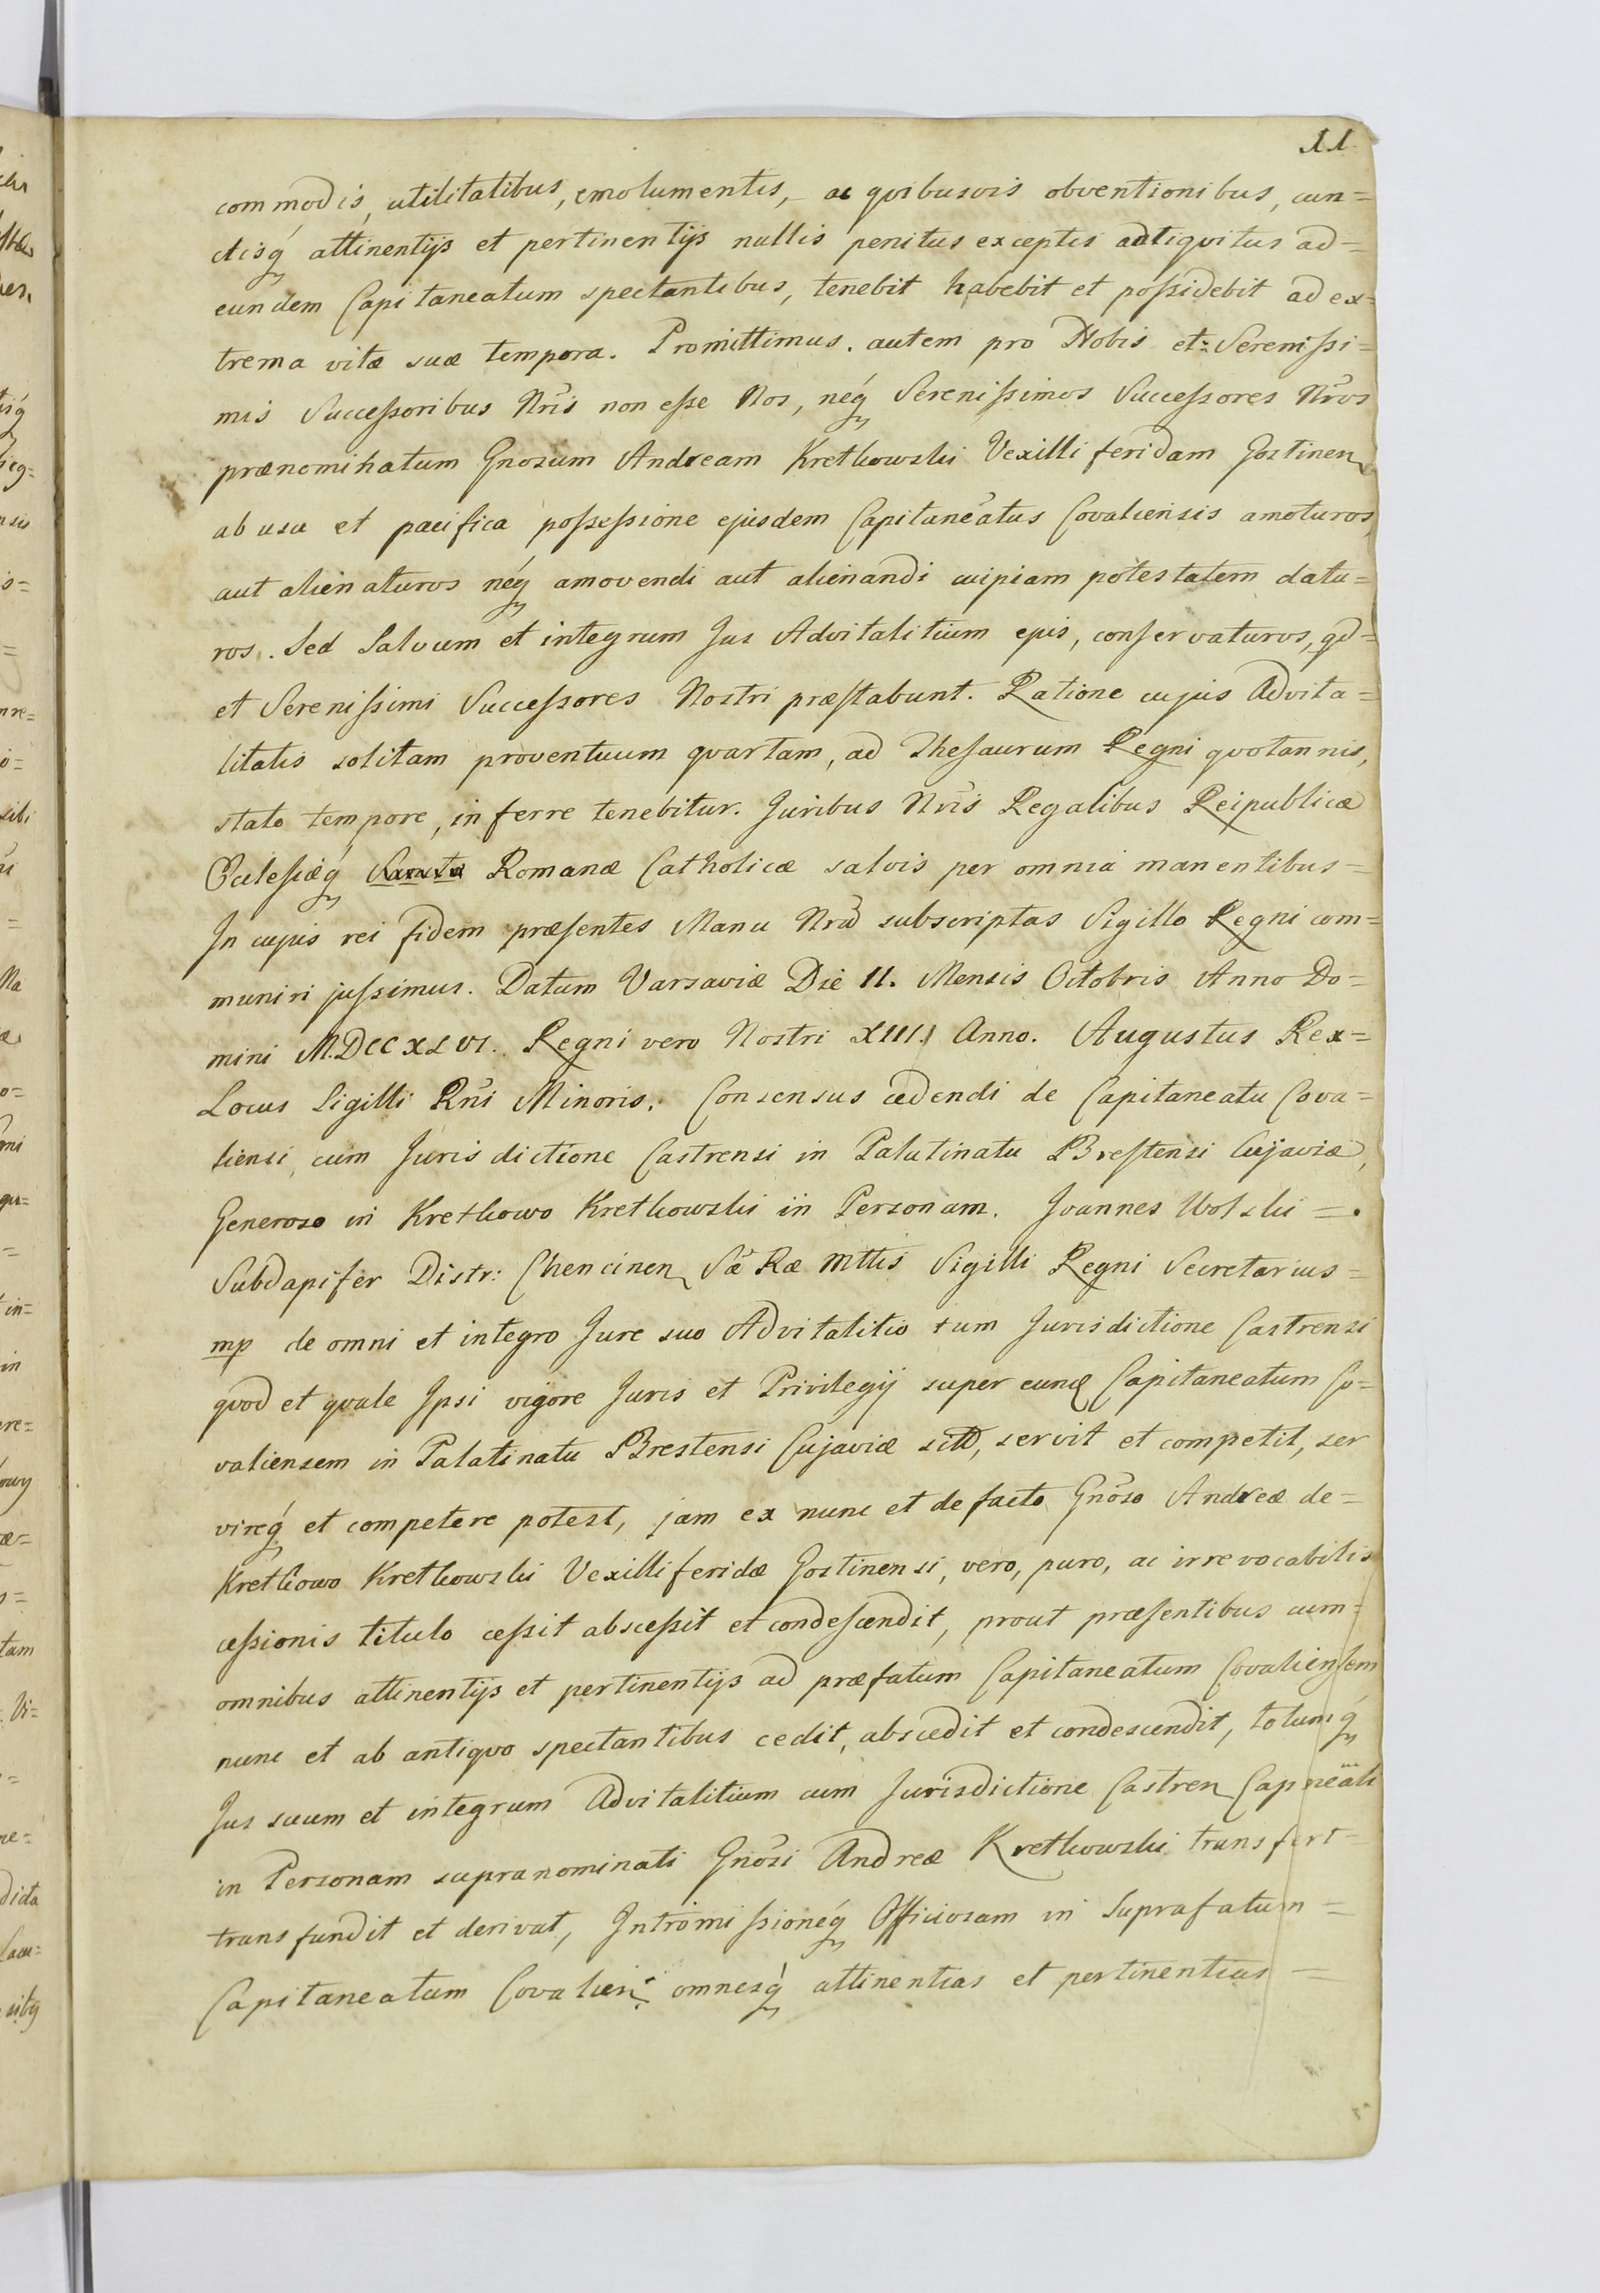 11
commodis, utilitatibus, emolumentis, ac qvibusvis obventionibus, cun=
ctisq́ attinentijs et pertinentijs nullis penitus exceptis adtiqvitus ad=
eundem Capitaneatum spectantibus, tenebit habebit et poſsidebit ad ex=
trema vitæ suæ tempora. Promittimus. autem pro Nobis et Sereniſsi=
mis Succeſsoribus Nr̃is non eſse Nos, neq́ Sereniſsimos Succeſsores Nr̃os
prænominatum Gnosum Andream Kretkowski Vexilliferidam Gostinen
ab usu et pacifica poſseſsione ejusdem Capitaneatus Covaliensis amoturos,
aut alienaturos neq́ amovendi aut alienandi cuipiam potestatem datu=
ros. Sed Salvum et integrum Jus Advitalitium ejus, conſervaturos, qd=
et Sereniſsimi Succeſsores Nostri præſtabunt. Ratione cujus Advita=
litatis solitam proventuum qvartam, ad Theſaurum Regni qvotannis,
stato tempore, inferre tenebitur. Juribus Nr̃is Regalibus Reipublicæ
Eccleſiæq́ Romanæ Catholicæ salvis per omnia manentibus=
In cujus rei fidem præſentes Manu Nrã subscriptas Sigillo Regni com=
muniri juſsimus. Datum Varsaviæ Die 11. Mensis Octobris Anno Do=
mini M.DCCXLVI. Regni vero Nostri XIII. Anno. Augustus Rex=
Locus Sigilli Rñi Minoris. Consensus cedendi de Capitaneatu Cova=
liensi, cum Jurisdictione Castrensi in Palatinatu Breſtensi Cujaviæ,
Generoso in Kretkowo Kretkowski in Personam. Joannes Wolski =.
Subdapifer Distr: Chencinen Sæ Ræ Mttis Sigilli Regni Secretarius=
mp de omni et integro Jure suo Advitalitio cum Jurisdictione Castrensi
qvod et qvale Ipsi vigore Juris et Privilegij super eund Capitaneatum Co=
valiensem in Palatinatu Brestensi Cujaviæ sitũ, servit et competit, ser
vireq́ et competere potest, jam ex nunc et de facto Gnõso Andreæ de=
Kretkowo Kretkowski Vexilliferidæ Gostinensi, vero, puro, ac irrevocabilis
ceſsionis titulo ceſsit absceſsit et condeſcendit, prout præſentibus cum=
omnibus attinentijs et pertinentijs ad præfatum Capitaneatum Covalienſem
nunc et ab antiqvo spectantibus cedit, abscedit et condescendit, totumq́
Jus suum et integrum Advitalitium cum Jurisdictione Castren Capneãli
in Personam supranominati Gnõsi Andreæ Kretkowski transfert=
transfundit et derivat, Intromiſsioneq́ Officiosam in Suprafatum=
Capitaneatum Covalien: omnesq́ attinentias et pertinentias=